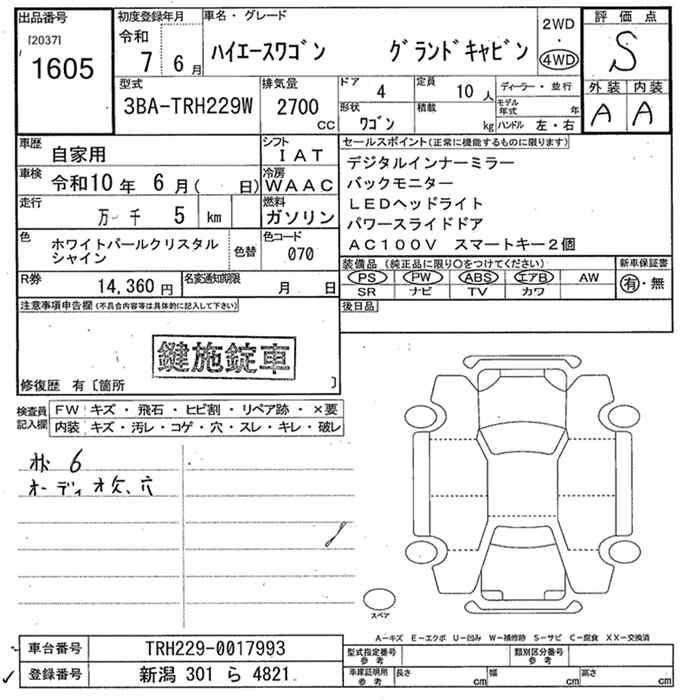 出品番号
[2037]
1605
初度登録年月
令和
7年 6月
車名・グレード
ハイエースワゴン グランドキャビン
2WD
・
4WD
評価点
S
外装 内装
A A
型式
3BA-TRH229W
排気量
2700 CC
ドア 4
形状 ワゴン
定員 10人
積載 kg
ディーラー・並行
モデル年式 年
ハンドル 左・右
車歴 自家用
シフト IAT
車検 令和10年 6月( 日)
冷房 WAAC
走行 万 千 5 km
燃料 ガソリン
色 ホワイトパールクリスタルシャイン
色替
色コード 070
R券 14,360円
名変通知期限 月 日
セールスポイント(正常に機能するものに限ります)
デジタルインナーミラー
バックモニター
LEDヘッドライト
パワースライドドア
AC100V スマートキー2個
装備品(純正品に限り○をつけてください)
新車保証書
PS PW ABS エアB AW
SR ナビ TV カワ
有・無
後日品
注意事項申告欄(不具合内容等は具体的に記入して下さい)
鍵施錠車
修復歴 有〔箇所 〕
検査員記入欄
FW キズ・飛石・ヒビ割・リペア跡・×要
内装 キズ・汚レ・コゲ・穴・スレ・キレ・破レ
6
オーディオ欠、穴
スペア
A-キズ E-エクボ U-凹み W-補修跡 S-サビ C-腐食 XX-交換済
車台番号 TRH229-0017993
登録番号 新潟 301 ら 4821
型式指定番号 参考
類別区分番号 参考
車庫証明用 参考
長さ cm 幅 cm 高さ cm